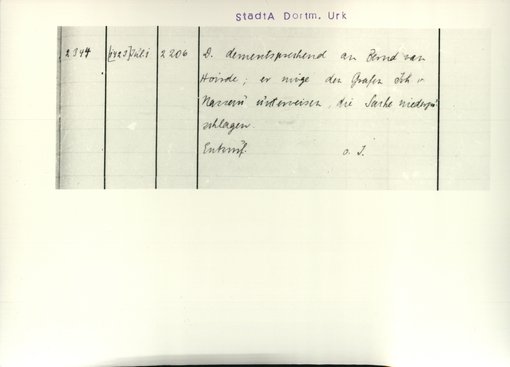 StadtA Dortm. Urk
2344 [1423] Juli 2206 D. dementsprechend an Bernd van
Hoirde; er möge den Grafen Joh v
Nassau unterweisen, die Sache niederzu
schlagen.
Entwurf. o. J.